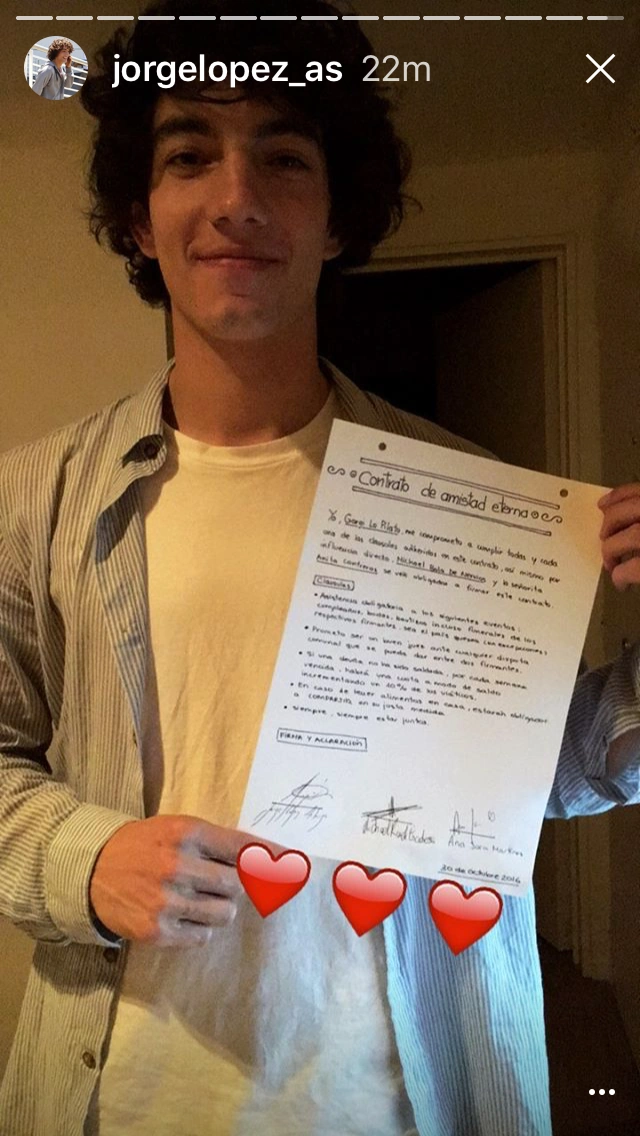 jorgelopez_as 22m
Contrato de amistad eterna
Yo, Gorgi Lo Riato, me comprometo a cumplir todas y cada
una de las clausulas adheridas en este contrato, así mismo por
influencia directa, Michael y la señorita
Anita Contreras se ven obligados a firmar este contrato.
Clausulas
• Asistencia obligatoria a los siguientes eventos:
cumpleaños, bodas, bautizos incluso funerales de los
respectivos firmantes, sea el país que sea (sin excepciones)
• Prometo ser un buen juez ante cualquier disputa
comunal que se pueda dar entre dos firmantes.
• Si una deuda no ha sido saldada, por cada semana
vencida, habrá una cuota a modo de saldo
incrementando un 10% de los
• En caso de tener alimentos en casa, estarán obligados
a compartirlo en su justa medida
• Siempre, siempre estar juntos.
FIRMA Y ACLARACIÓN
Ana Sara Martins
20 de Octubre 2016